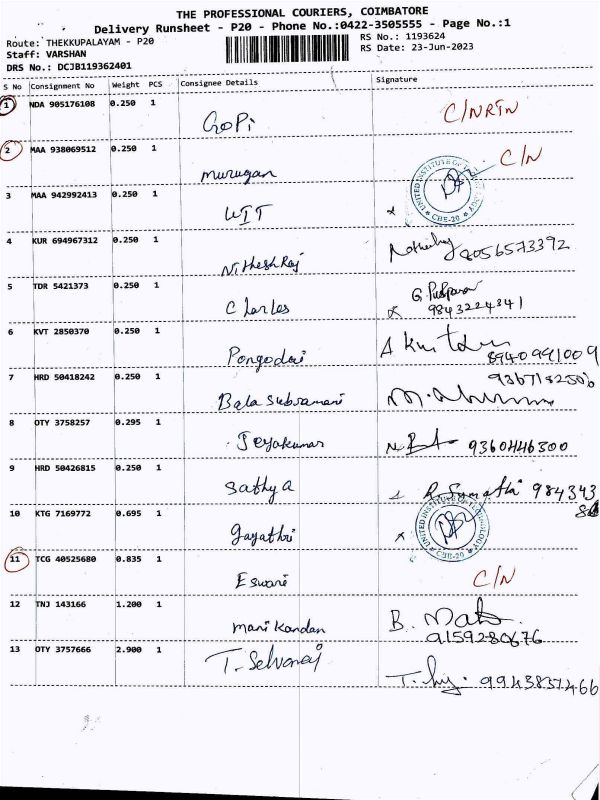 THE PROFESSIONAL COURIERS, COIMBATORE
Delivery Runsheet - P20 - Phone No.:0422-3505555 - Page No.:1
Route: THEKKUPALAYAM - P20
RS No.: 1193624
Staff: VARSHAN
RS Date: 23-Jun-2023
DRS No.: DCJB119362401
S No Consignment No Weight PCS Consignee Details Signature
1 NDA 905176108 0.250 1 Gopi C/NRTN
2 MAA 938069512 0.250 1 murugan C/N
3 MAA 942992413 0.250 1 UIT x
UNITED INSTITUTE OF
CBE-20
4 KUR 694967312 0.250 1 Nithesh Raj 8056573392
5 TDR 5421373 0.250 1 Charles x 9843224341
6 KVT 2850370 0.250 1 Pongodai 8940991009
7 HRD 50418242 0.250 1 Bala Subramani
8 OTY 3758257 0.295 1 Jeyakumar 9360446300
9 HRD 50426815 0.250 1 Sathya R. Sumathi 984343
10 KTG 7169772 0.695 1 gayathri x
UNITED INSTITUTE OF TECHNOLOGY
CBE-20
11 TCG 40525680 0.835 1 Eswari C/N
12 TNJ 143166 1.200 1 mani Kandan B.
9159280676
13 OTY 3757666 2.900 1 T. Selvaraj 9943837466